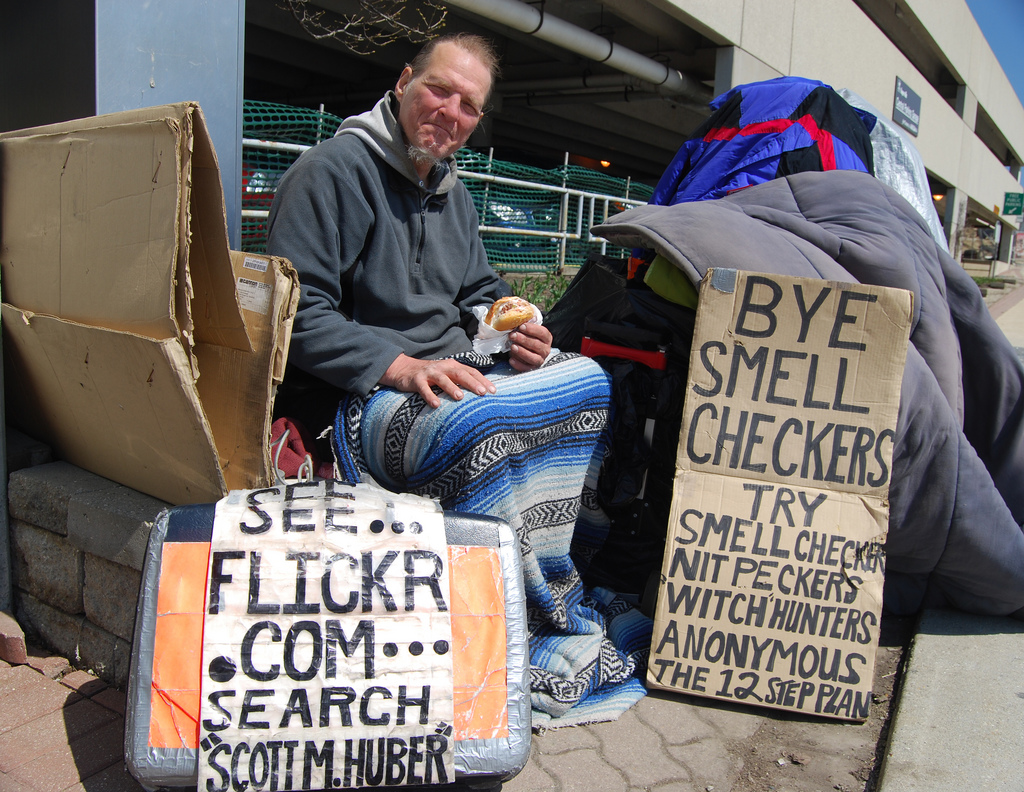 SEE...
FLICKR
.COM...
SEARCH
"SCOTT M. HUBER"
BYE
SMELL
CHECKERS
TRY
SMELL CHECKER
NIT PECKERS
WITCH HUNTERS
ANONYMOUS
THE 12 STEP PLAN